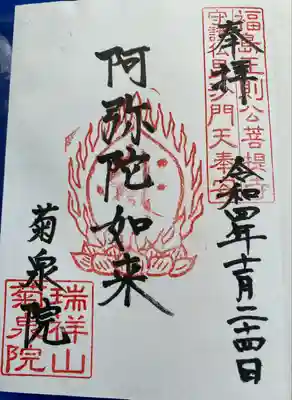 奉拝
福島正則公菩提所
守護仏毘沙門天奉安
令和四年十一月二十四日
阿弥陀如来
菊泉院
瑞祥山
菊泉院